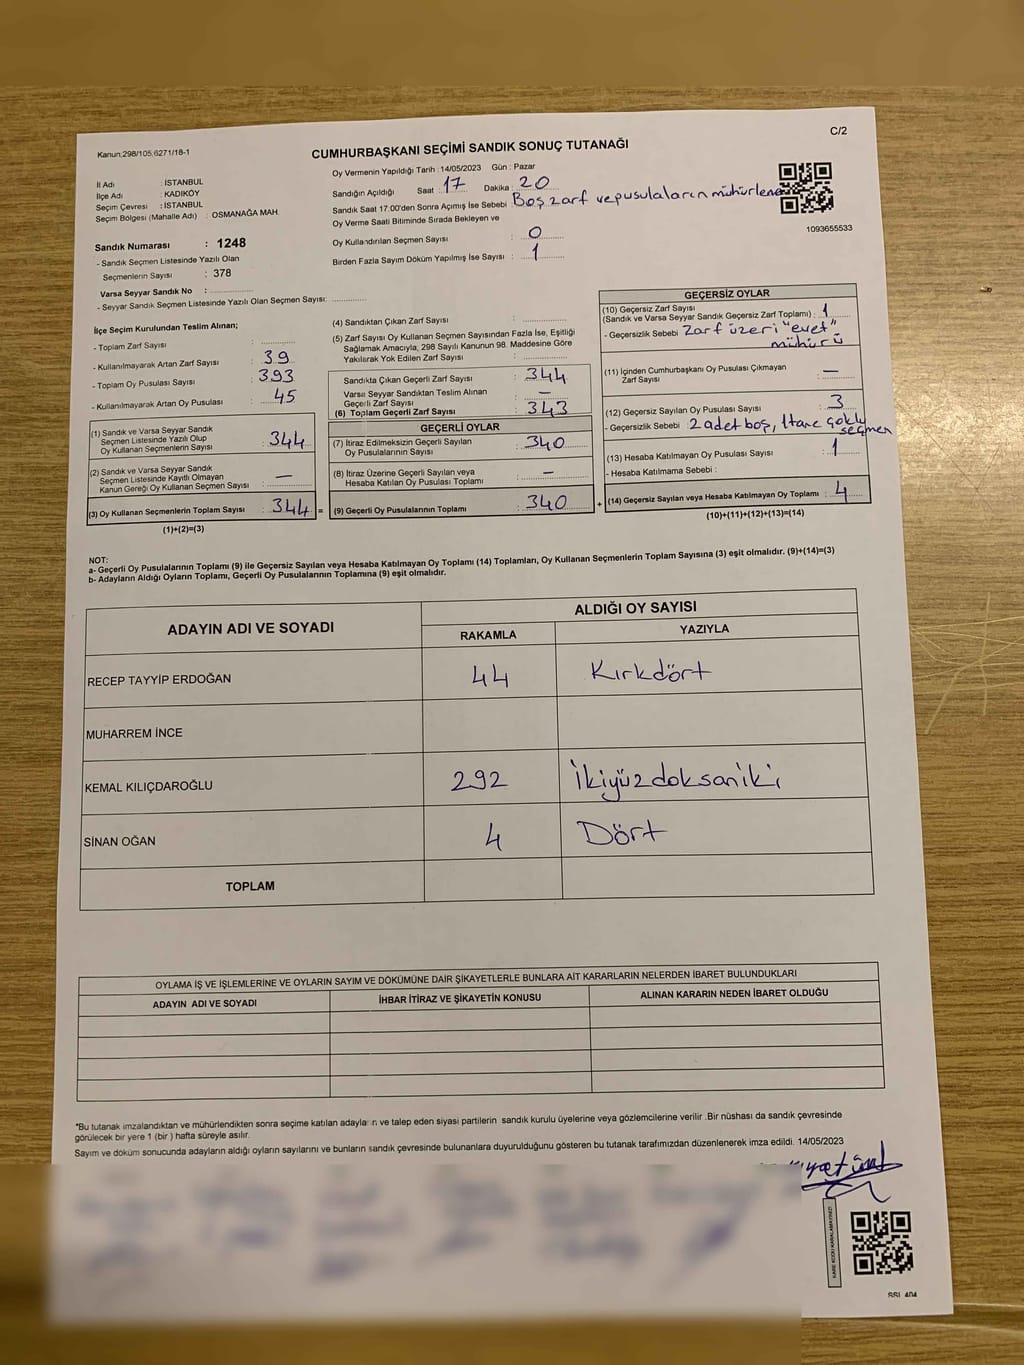 C/2
Kanun:298/105,6271/18-1
CUMHURBAŞKANI SEÇİMİ SANDIK SONUÇ TUTANAĞI
İl Adı : İSTANBUL
İlçe Adı : KADIKÖY
Seçim Çevresi : İSTANBUL
Seçim Bölgesi (Mahalle Adı) : OSMANAĞA MAH.
Sandık Numarası : 1248
- Sandık Seçmen Listesinde Yazılı Olan
Seçmenlerin Sayısı : 378
Varsa Seyyar Sandık No :
- Seyyar Sandık Seçmen Listesinde Yazılı Olan Seçmen Sayısı:
Oy Vermenin Yapıldığı Tarih : 14/05/2023 Gün : Pazar
Sandığın Açıldığı Saat : 17 Dakika : 20
Sandık Saat 17:00'den Sonra Açımış İse Sebebi Boş zarf ve pusulaların mühürlene
Oy Verme Saati Bitiminde Sırada Bekleyen ve
Oy Kullandırılan Seçmen Sayısı : 0
Birden Fazla Sayım Döküm Yapılmış İse Sayısı : 1
1093655533
İlçe Seçim Kurulundan Teslim Alınan;
- Toplam Zarf Sayısı :
- Kullanılmayarak Artan Zarf Sayısı : 39
- Toplam Oy Pusulası Sayısı : 393
- Kullanılmayarak Artan Oy Pusulası : 45
(1) Sandık ve Varsa Seyyar Sandık
Seçmen Listesinde Yazılı Olup
Oy Kullanan Seçmenlerin Sayısı : 344
(2) Sandık ve Varsa Seyyar Sandık
Seçmen Listesinde Kayıtlı Olmayan
Kanun Gereği Oy Kullanan Seçmen Sayısı : —
(3) Oy Kullanan Seçmenlerin Toplam Sayısı : 344 =
(1)+(2)=(3)
(4) Sandıktan Çıkan Zarf Sayısı :
(5) Zarf Sayısı Oy Kullanan Seçmen Sayısından Fazla İse, Eşitliği
Sağlamak Amacıyla, 298 Sayılı Kanunun 98. Maddesine Göre
Yakılırak Yok Edilen Zarf Sayısı :
Sandıkta Çıkan Geçerli Zarf Sayısı : 344
Varsa Seyyar Sandıktan Teslim Alınan
Geçerli Zarf Sayısı : —
(6) Toplam Geçerli Zarf Sayısı : 343
GEÇERLİ OYLAR
(7) İtiraz Edilmeksizin Geçerli Sayılan
Oy Pusulalarının Sayısı : 340
(8) İtiraz Üzerine Geçerli Sayılan veya
Hesaba Katılan Oy Pusulası Toplamı : —
(9) Geçerli Oy Pusulalarının Toplamı : 340 +
GEÇERSİZ OYLAR
(10) Geçersiz Zarf Sayısı
(Sandık ve Varsa Seyyar Sandık Geçersiz Zarf Toplamı) : 1
- Geçersizlik Sebebi Zarf üzeri "evet"
mühürü
(11) İçinden Cumhurbaşkanı Oy Pusulası Çıkmayan
Zarf Sayısı : —
(12) Geçersiz Sayılan Oy Pusulası Sayısı : 3
- Geçersizlik Sebebi 2 adet boş, 1 tane çoklu
seçmen
(13) Hesaba Katılmayan Oy Pusulası Sayısı : 1
- Hesaba Katılmama Sebebi :
(14) Geçersiz Sayılan veya Hesaba Katılmayan Oy Toplamı : 4
(10)+(11)+(12)+(13)=(14)
NOT:
a- Geçerli Oy Pusulalarının Toplamı (9) ile Geçersiz Sayılan veya Hesaba Katılmayan Oy Toplamı (14) Toplamları, Oy Kullanan Seçmenlerin Toplam Sayısına (3) eşit olmalıdır. (9)+(14)=(3)
b- Adayların Aldığı Oyların Toplamı, Geçerli Oy Pusulalarının Toplamına (9) eşit olmalıdır.
ADAYIN ADI VE SOYADI
ALDIĞI OY SAYISI
RAKAMLA YAZIYLA
RECEP TAYYİP ERDOĞAN 44 Kırkdört
MUHARREM İNCE
KEMAL KILIÇDAROĞLU 292 İkiyüzdoksaniki
SİNAN OĞAN 4 Dört
TOPLAM
OYLAMA İŞ VE İŞLEMLERİNE VE OYLARIN SAYIM VE DÖKÜMÜNE DAİR ŞİKAYETLERLE BUNLARA AİT KARARLARIN NELERDEN İBARET BULUNDUKLARI
ADAYIN ADI VE SOYADI İHBAR İTİRAZ VE ŞİKAYETİN KONUSU ALINAN KARARIN NEDEN İBARET OLDUĞU
*Bu tutanak imzalandıktan ve mühürlendikten sonra seçime katılan adayla n ve talep eden siyasi partilerin sandık kurulu üyelerine veya gözlemcilerine verilir .Bir nüshası da sandık çevresinde
görülecek bir yere 1 (bir ) hafta süreyle asılır.
Sayım ve döküm sonucunda adayların aldığı oyların sayılarını ve bunların sandık çevresinde bulunanlara duyurulduğunu gösteren bu tutanak tarafımızdan düzenlenerek imza edildi. 14/05/2023
KARE KODU KARALAMAYINIZ!